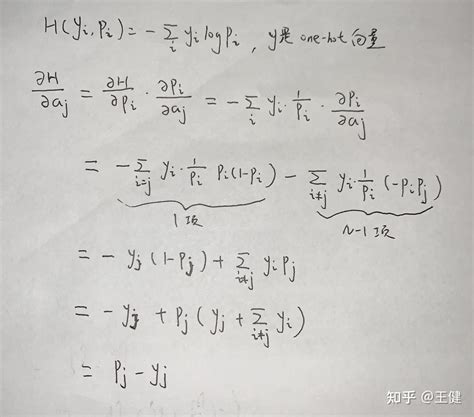 H(yi, Pi) = - Σ_i yi log Pi , y是 one-hot 向量
∂H/∂aj = ∂H/∂Pi · ∂Pi/∂aj = - Σ_i yi · 1/Pi · ∂Pi/∂aj
= - Σ_{i=j} yi · 1/Pi Pi(1-Pi) - Σ_{i≠j} yi · 1/Pi (-PiPj)
1项 N-1项
= - yj (1-Pj) + Σ_{i≠j} yi Pj
= - yj + Pj ( yj + Σ_{i≠j} yi )
= Pj - yj
知乎 @王健